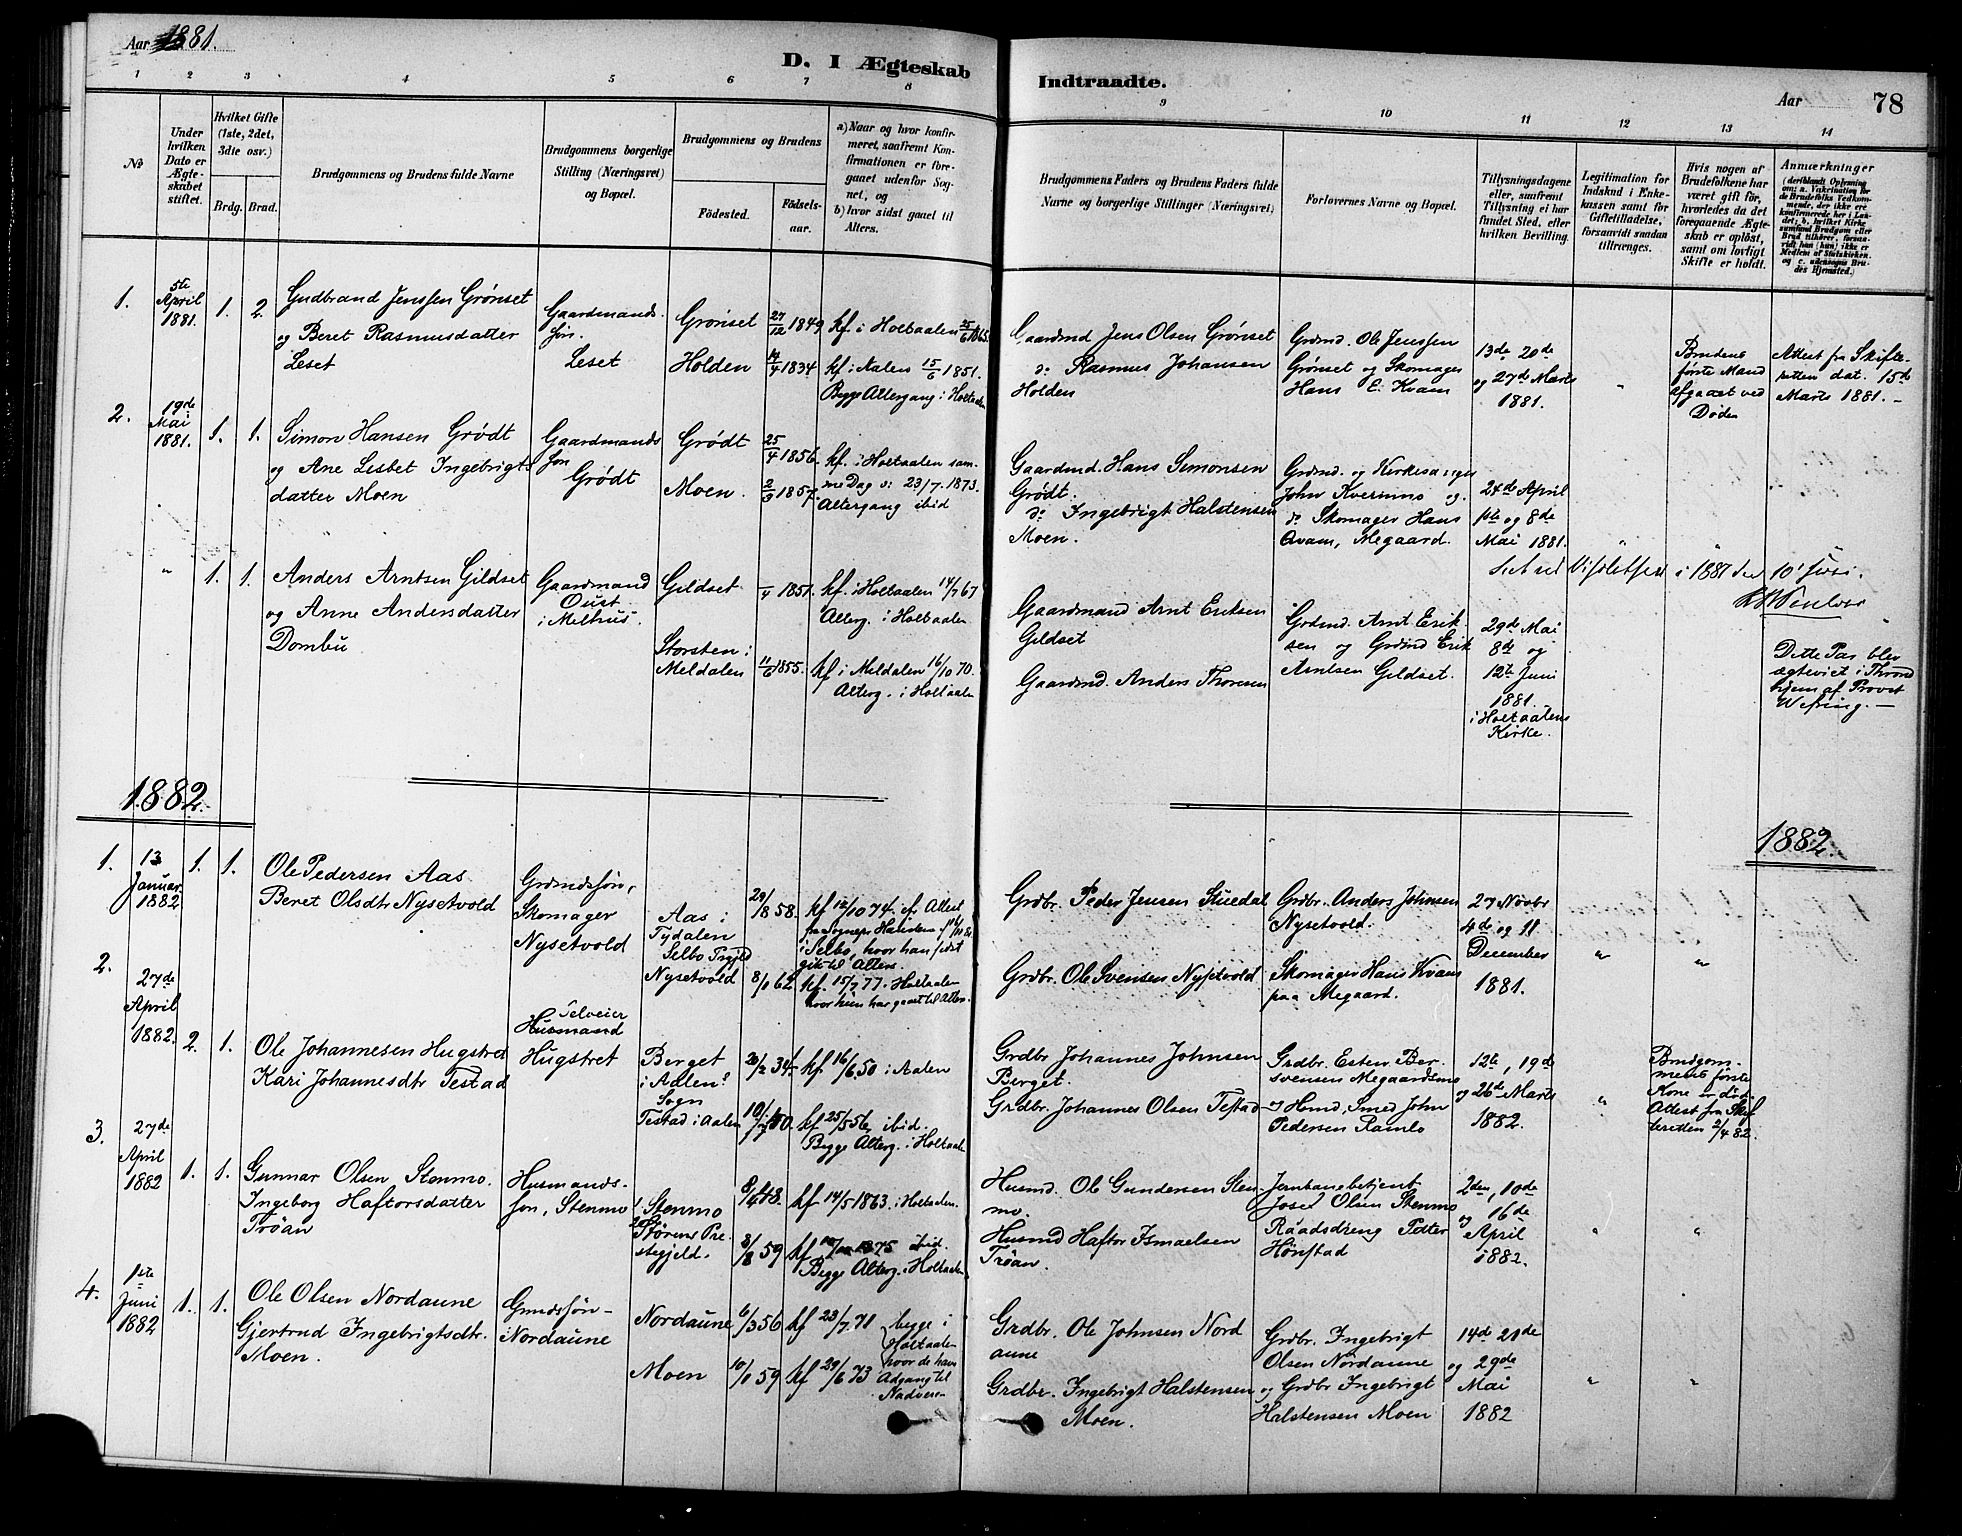 Aar 1881.
D. I Ægteskab Indtraadte.
Aar 78
1 2 3 4 5 6 7 8 9 10 11 12 13 14
No
Under hvilken Dato er Ægteskabet stiftet.
Hvilket Gifte (1ste, 2det, 3die osv.)
Brdg. Brud.
Brudgommens og Brudens fulde Navne
Brudgommens borgerlige Stilling (Næringsvei) og Bopæl.
Brudgommens og Brudens
Fødested. Fødselsaar.
a) Naar og hvor konfirmeret, saafremt Konfirmationen er foregaaet udenfor Sognet, og
b) hvor sidst gaaet til Alters.
Brudgommens Faders og Brudens Faders fulde Navne og borgerlige Stillinger (Næringsvei)
Forlovernes Navne og Bopæl.
Tillysningsdagene eller, saafremt Tillysning ei har fundet Sted, efter hvilken Bevilling.
Legitimation for Indskud i Enkekassen samt for Giftetilladelse, forsaavidt saadan tiltrænges.
Hvis nogen af Brudefolkene har været gift før, hvorledes da det foregaaende Ægteskab er opløst, samt om lovligt Skifte er holdt.
Anmærkninger
1. 5te April 1881. 1. 2.
Gudbrand Jenssen Grønset
og Beret Rasmusdatter
Leset
Gaardmands.
søn.
Leset
Grønset 27/12 1849
Holden 14/4 1834
kf. i Holtaalen 25/6 1865.
kf. i Aalen 15/6 1851.
Begge Altergang i Holtaalen
Gaardmd Jens Olsen Grønset
do Rasmus Johansen
Holden
Grdmd. Ole Jenssen
Grønset og Skomager
Hans E. Kvam
13de 20de
og 27de Marts
1881.
"
Brudens
første Mand
afgaaet ved
Døden
Attest fra Skifteretten dat. 15de
Marts 1881. -
2. 19de Mai 1881. 1. 1.
Simon Hansen Grødt
og Ane Lisbet Ingebrigtsdatter Moen
Gaardmands
søn
Grødt
Grødt 25/4 1856.
Moen. 2/9 1857.
kf. i Holtaalen samme Dag o: 23/7. 1873.
Altergang ibid
Gaardmd. Hans Simonsen
Grødt.
do Ingebrigt Halstensen
Moen.
Grdmd. og Kirkesanger
John Kvernmo og
do Skomager Hans
Qvam, Megaard.
24de April
1ste og 8de
Mai 1881.
" 1. 1.
Anders Arntsen Gildset
og Anne Andersdatter
Dombu
Gaardmand
Oust
i Melhus.
Gildset. /4 1851.
Storsten i
Meldalen 11/6 1855.
kf. i Holtaalen 14/7 67
Alterg. i Holtaalen
kf i Meldalen 16/10 70.
Alterg. i Holtaalen
Gaardmand Arnt Eriksen
Gildset
Gaardmd. Anders Thoresen
Grdmd. Arnt Eriksen og Grdmd Erik
Arntsen Gildset.
29de Mai
8de og
12te Juni
1881.
i Holtaalens
Kirke.
i 1887 den 10'
Dette Par blev
ægteviet i Throndhjem af Provst
Wefring. -
1882.
1882.
1. 13 Januar 1882 1. 1.
Ole Pedersen Aas
Beret Olsdtr Nysetvold
Grdmdssøn,
Skomager
Nysetvold
Aas i
Tydalen
Selbo Prgjld
Nysetvold
29/8 58.
8/1 62.
kf 12/10 74. efr. Attest
i Selbo, hvor han sidst
gik til Alters.
kf. 15/7 77. Holtaalen
hvor hun har gaaet til Alters.
Grdbr. Peder Jensen Stuedal
Grdbr. Ole Svensen Nysetvold
Grdbr. Anders Johnsen
Nysetvold.
Skomager Hans Kvam
paa Megaard.
27 Novbr
4de og 11
December
1881.
" "
2. 27de April 1882. 2. 1.
Ole Johannesen Hugstret
Kari Johannesdtr Testad
Selveier
Husmand
Hugstret
Berget
i Aalens
Sogn
Testad i Aalen
20/2 34.
kf 16/6 50 i Aalen
kf 25/5 56 ibid.
Begge Alterg. i Holtaalen
Grdbr Johannes Johnsen
Berget.
Grdbr. Johannes Olsen Testad
Grdbr. Esten Bersvensen Megaardsmo
og Hsmd, Smed John
Pedersen Ramlo
12te, 19de
og 26de Marts
1882.
"
Brudgommens første
Kone er død.
Attest fra Skifteretten 2/4 82.
3. 27de April 1882 1. 1.
Gunnar Olsen Stenmo.
Ingeborg Haftorsdatter
Trøan
Husmandssøn, Stenmo
Stenmo
Størens Prestegjeld.
8/6 48.
8/8 59
kf 14/5 1863. i Holtaalen.
kf 1875 ibid.
Begge Alterg. i Holtaalen
Husmd. Ole Gundersen Stenmo.
Husmd Haftor Ismaelsen
Trøan.
Jernbanebetjent
Josef Olsen Stenmo
Raadsdreng Petter
Hønstad
2den, 10de
og 16de
April
1882.
" "
4. 1ste Juni 1882 1. 1.
Ole Olsen Nordaune
Gjertrud Ingebrigtsdtr.
Moen.
Grmdssøn -
Nordaune
Nordaune 6/3 56
Moen 10/1 59
kf 23/7. 71
kf 29/6 73
begge i
Holtaalen
hvor de have
Adgang til
Nadveren
Grdbr. Ole Johnsen Nordaune
Grdbr. Ingebrigt Halstensen
Moen.
Grdbr. Ingebrigt
Olsen Nordaune
og Grdbr Ingebrigt
Halstensen Moen
14de 21de
og 29de
Mai
1882
" "